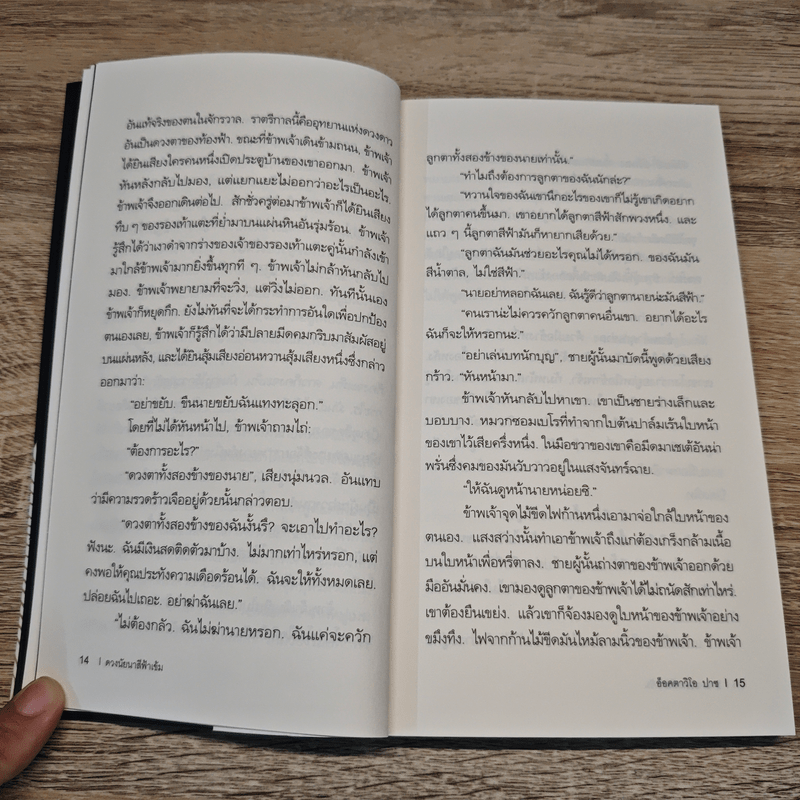 อันแท้จริงของตนในจักรวาล. ราตรีกาลนี้คืออุทยานแห่งดวงดาว
อันเป็นดวงตาของท้องฟ้า. ขณะที่ข้าพเจ้าเดินข้ามถนน, ข้าพเจ้า
ได้ยินเสียงใครคนหนึ่งเปิดประตูบ้านของเขาออกมา. ข้าพเจ้า
หันหลังกลับไปมอง, แต่แยกแยะไม่ออกว่าอะไรเป็นอะไร.
ข้าพเจ้าจึงออกเดินต่อไป. สักชั่วครู่ต่อมาข้าพเจ้าก็ได้ยินเสียง
ทึบ ๆ ของรองเท้าแตะที่ย่ำมาบนแผ่นหินอันรุ่มร้อน. ข้าพเจ้า
รู้สึกได้ว่าเงาดำจากร่างของเจ้าของรองเท้าแตะคู่นั้นกำลังเข้า
มาใกล้ข้าพเจ้ามากยิ่งขึ้นทุกที ๆ. ข้าพเจ้าไม่กล้าหันกลับไป
มอง. ข้าพเจ้าพยายามที่จะวิ่ง, แต่วิ่งไม่ออก. ทันทีนั้นเอง
ข้าพเจ้าก็หยุดกึก. ยังไม่ทันที่จะได้กระทำการอันใดเพื่อปกป้อง
ตนเองเลย, ข้าพเจ้าก็รู้สึกได้ว่ามีปลายมีดคมกริบมาสัมผัสอยู่
บนแผ่นหลัง, และได้ยินสุ้มเสียงอ่อนหวานสุ้มเสียงหนึ่งซึ่งกล่าว
ออกมาว่า:
"อย่าขยับ. ขืนนายขยับฉันแทงทะลุอก."
โดยที่ไม่ได้หันหน้าไป, ข้าพเจ้าถามไถ่:
"ต้องการอะไร?"
"ดวงตาทั้งสองข้างของนาย", เสียงนุ่มนวล. อันแทบ
ว่ามีความรวดร้าวเจืออยู่ด้วยนั้นกล่าวตอบ.
"ดวงตาทั้งสองข้างของฉันงั้นรึ? จะเอาไปทำอะไร?
ฟังนะ. ฉันมีเงินสดติดตัวมาบ้าง. ไม่มากเท่าไหร่หรอก, แต่
คงพอให้คุณประทังความเดือดร้อนได้. ฉันจะให้ทั้งหมดเลย.
ปล่อยฉันไปเถอะ. อย่าฆ่าฉันเลย."
"ไม่ต้องกลัว. ฉันไม่ฆ่านายหรอก. ฉันแค่จะควัก
14 | ดวงนัยนาสีฟ้าเข้ม
ลูกตาทั้งสองข้างของนายเท่านั้น."
"ทำไมถึงต้องการลูกตาของฉันนักล่ะ?"
"หวานใจของฉันเขานึกอะไรของเขาก็ไม่รู้เขาเกิดอยาก
ได้ลูกตาคนขึ้นมา. เขาอยากได้ลูกตาสีฟ้าสักพวงหนึ่ง, และ
แถว ๆ นี้ลูกตาสีฟ้ามันก็หายากเสียด้วย."
"ลูกตาฉันมันช่วยอะไรคุณไม่ได้หรอก. ของฉันมัน
สีน้ำตาล, ไม่ใช่สีฟ้า."
"นายอย่าหลอกฉันเลย. ฉันรู้ดีว่าลูกตานายน่ะมันสีฟ้า."
"คนเราน่ะไม่ควรควักลูกตาคนอื่นเขา. อยากได้อะไร
ฉันก็จะให้หรอกนะ."
"อย่าเล่นบทนักบุญ", ชายผู้นั้นมาบัดนี้พูดด้วยเสียง
กร้าว. "หันหน้ามา."
ข้าพเจ้าหันกลับไปหาเขา. เขาเป็นชายร่างเล็กและ
บอบบาง. หมวกซอมเบโรที่ทำจากใบต้นปาล์มเร้นใบหน้า
ของเขาไว้เสียครึ่งหนึ่ง. ในมือขวาของเขาคือมีดมาเชเต้อันน่า
พรั่นซึ่งคมของมันวับวาวอยู่ในแสงจันทร์ฉาย.
"ให้ฉันดูหน้านายหน่อยซิ."
ข้าพเจ้าจุดไม้ขีดไฟก้านหนึ่งเอามาจ่อใกล้ใบหน้าของ
ตนเอง. แสงสว่างนั้นทำเอาข้าพเจ้าถึงแก่ต้องเกร็งกล้ามเนื้อ
บนใบหน้าเพื่อหรี่ตาลง. ชายผู้นั้นถ่างตาของข้าพเจ้าออกด้วย
มืออันมั่นคง. เขามองดูลูกตาของข้าพเจ้าได้ไม่ถนัดสักเท่าไหร่.
เขาต้องยืนเขย่ง. แล้วเขาก็จ้องมองดูใบหน้าของข้าพเจ้าอย่าง
ขมึงทึง. ไฟจากก้านไม้ขีดมันไหม้ลามนิ้วของข้าพเจ้า. ข้าพเจ้า
อ็อคตาวิโอ ปาซ | 15